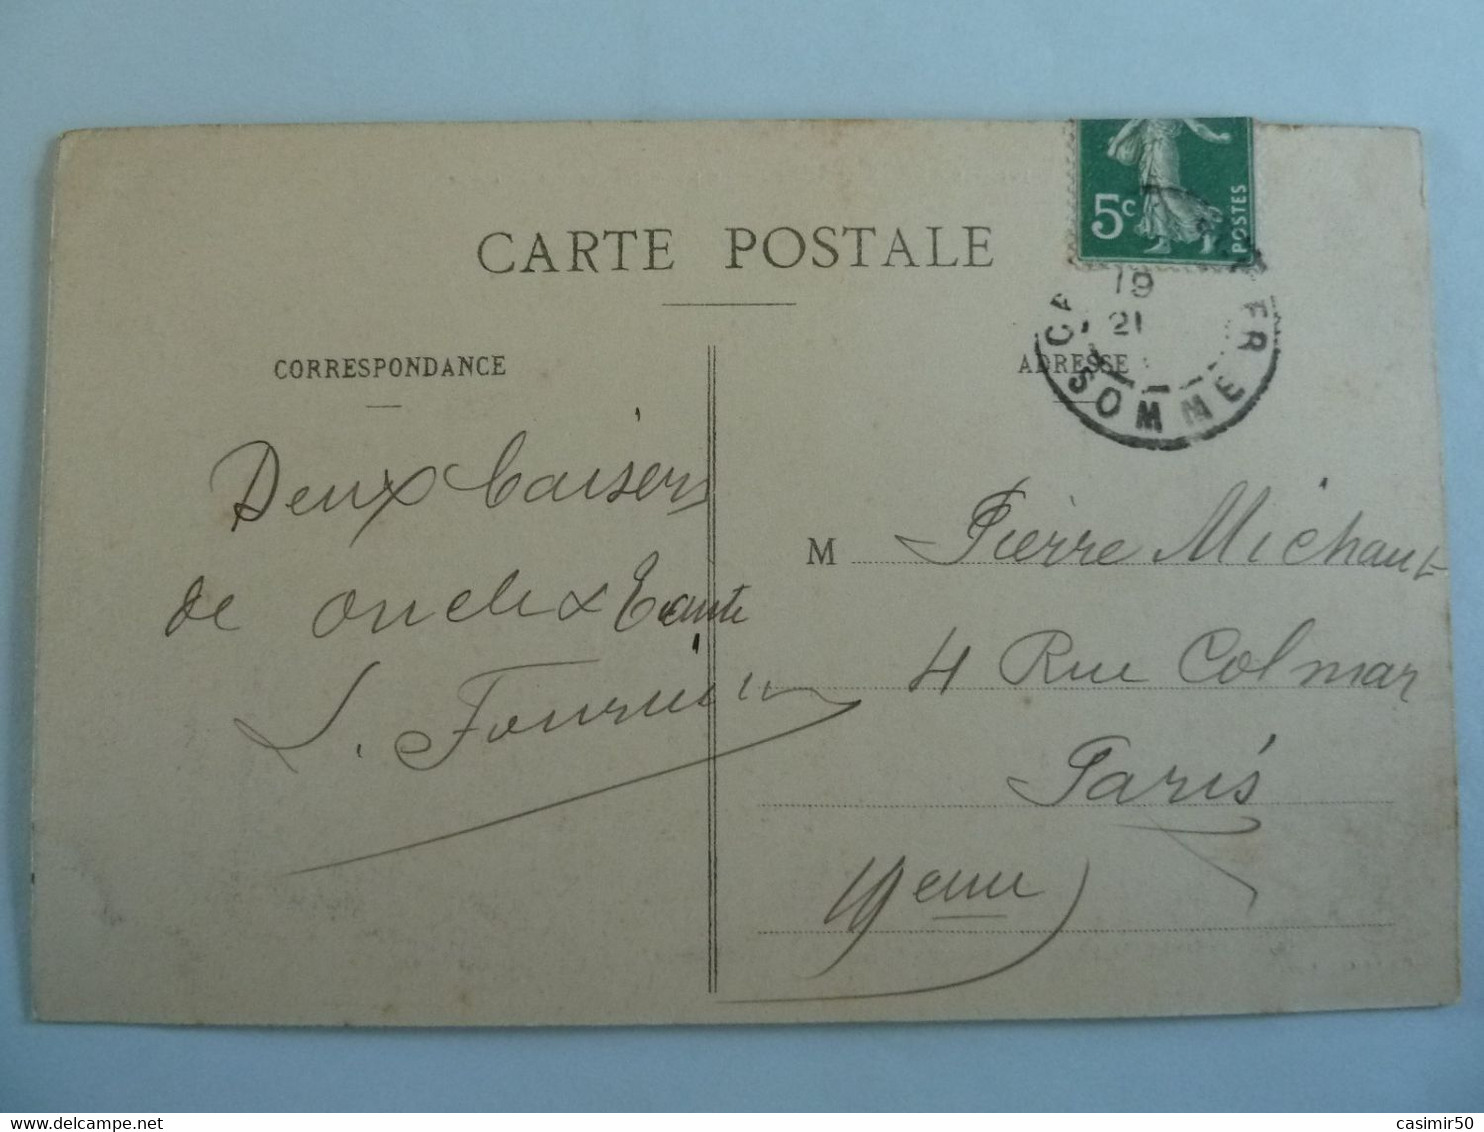 CARTE POSTALE
5c
POSTES
19
21
SOMME
CORRESPONDANCE
ADRESSE
Deux baisers
de oncle & tante
L. Fournier
M Pierre Michaut
4 Rue Colmar
Paris
19eme
delcampe.net
casimir50